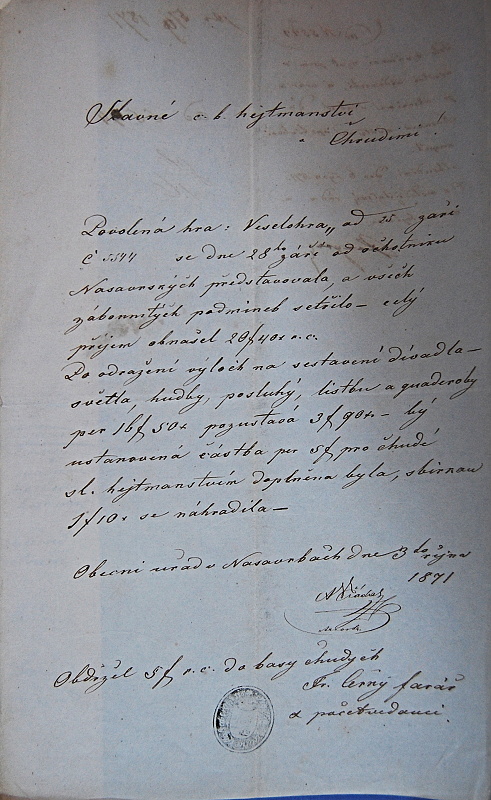 Slavné c. k. hejtmanství
v Chrudimi!
Povolená hra: Veselohra„ od 25 září
č 5544 se dne 28ho září od ochotníku
Nasavrských představovala, a všech
zákonnitých podmínek šetřilo – celý
příjem obnášel 20f 40x r.c.
Po odražení výloh na sestavení divadla –
světla, hudby, posluhy, lístku a quaderoby
per 16f 50x pozustavá 3f 90x – by
ustanovená částka per 5f pro chudé
sl. hejtmanstvím doplněna byla, sbírkau
1f 10x se nahradila –
Obecní úřad v Nasavrkách dne 3ho října
1871
Obdržel 5f r.c. do kasy chudých
Fr. Černý farář
a početvedoucí.